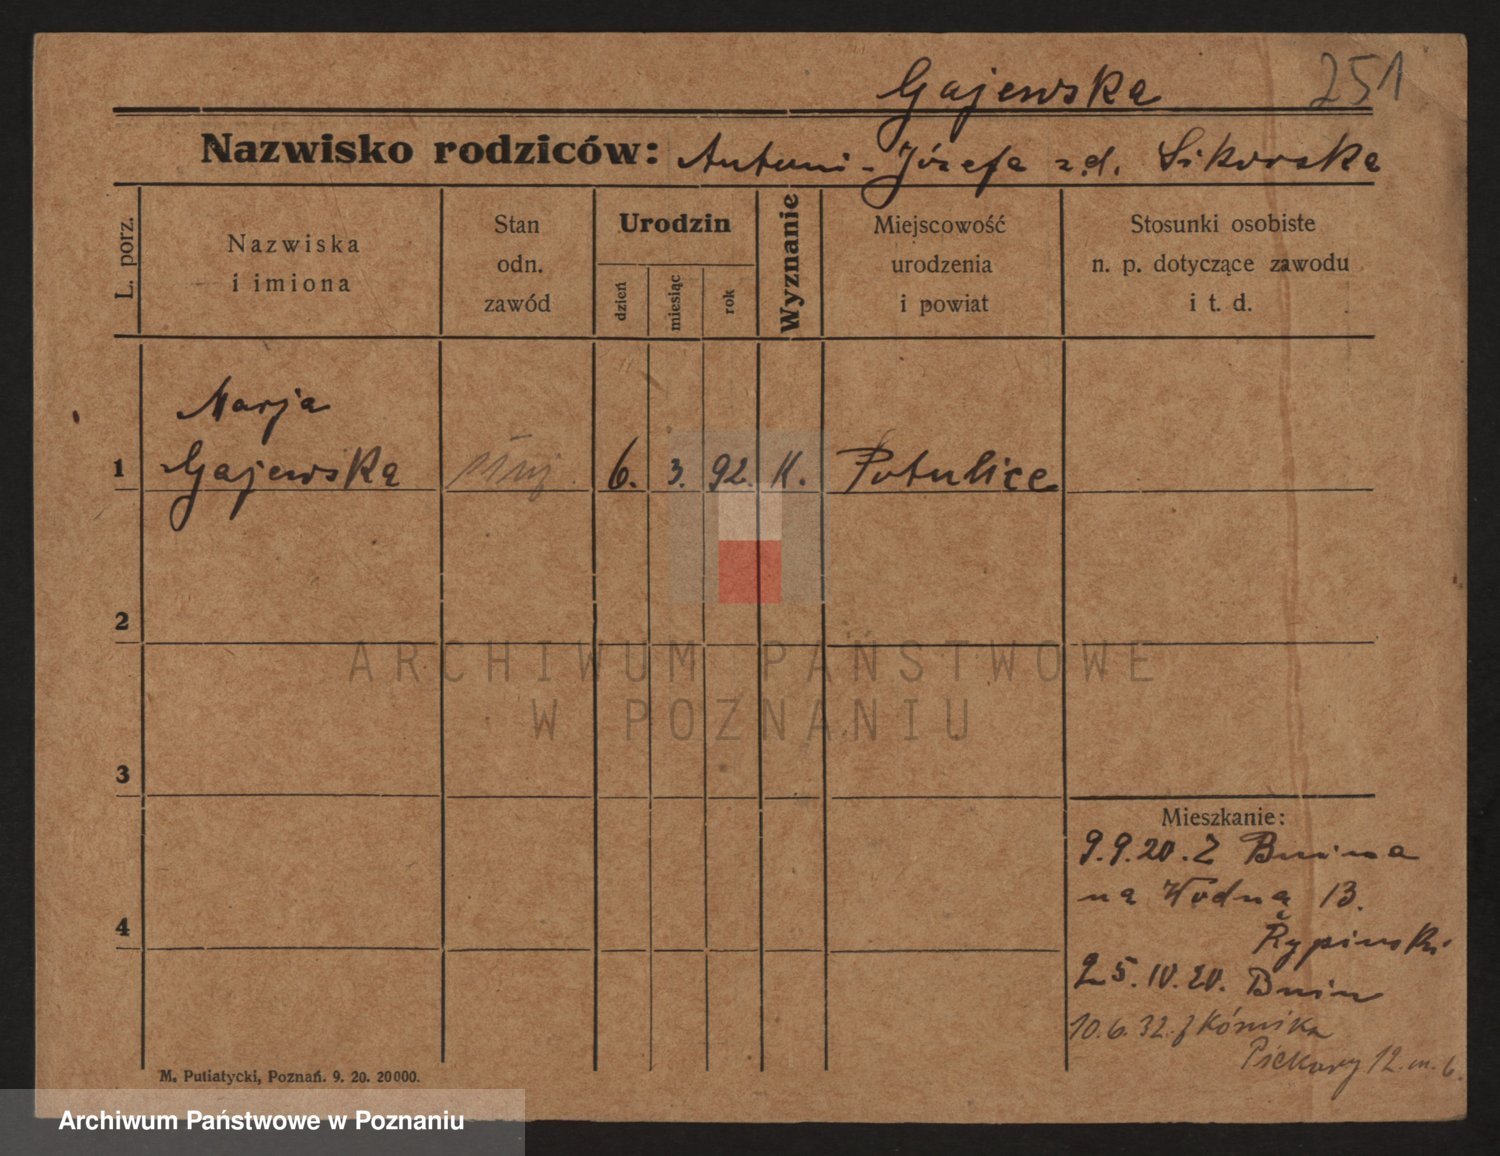 Gajewska 251
Nazwisko rodziców: Antoni - Józefa z.d. Sikorska
L. porz.
Nazwiska
i imiona
Stan
odn.
zawód
Urodzin
dzień
miesiąc
rok
Wyznanie
Miejscowość
urodzenia
i powiat
Stosunki osobiste
n. p. dotyczące zawodu
i t. d.
Marja
1 Gajewska 6. 3. 92. K. Potulice
2
ARCHIWUM PAŃSTWOWE
W POZNANIU
3
Mieszkanie:
9.9.20. Z Bnina
na Wodną 13.
4
Rypiński
25.IV.20. Bnin
10.6.32. z Kórnika
Piekary 12. m. 6.
M. Putiatycki, Poznań. 9. 20. 20000.
Archiwum Państwowe w Poznaniu